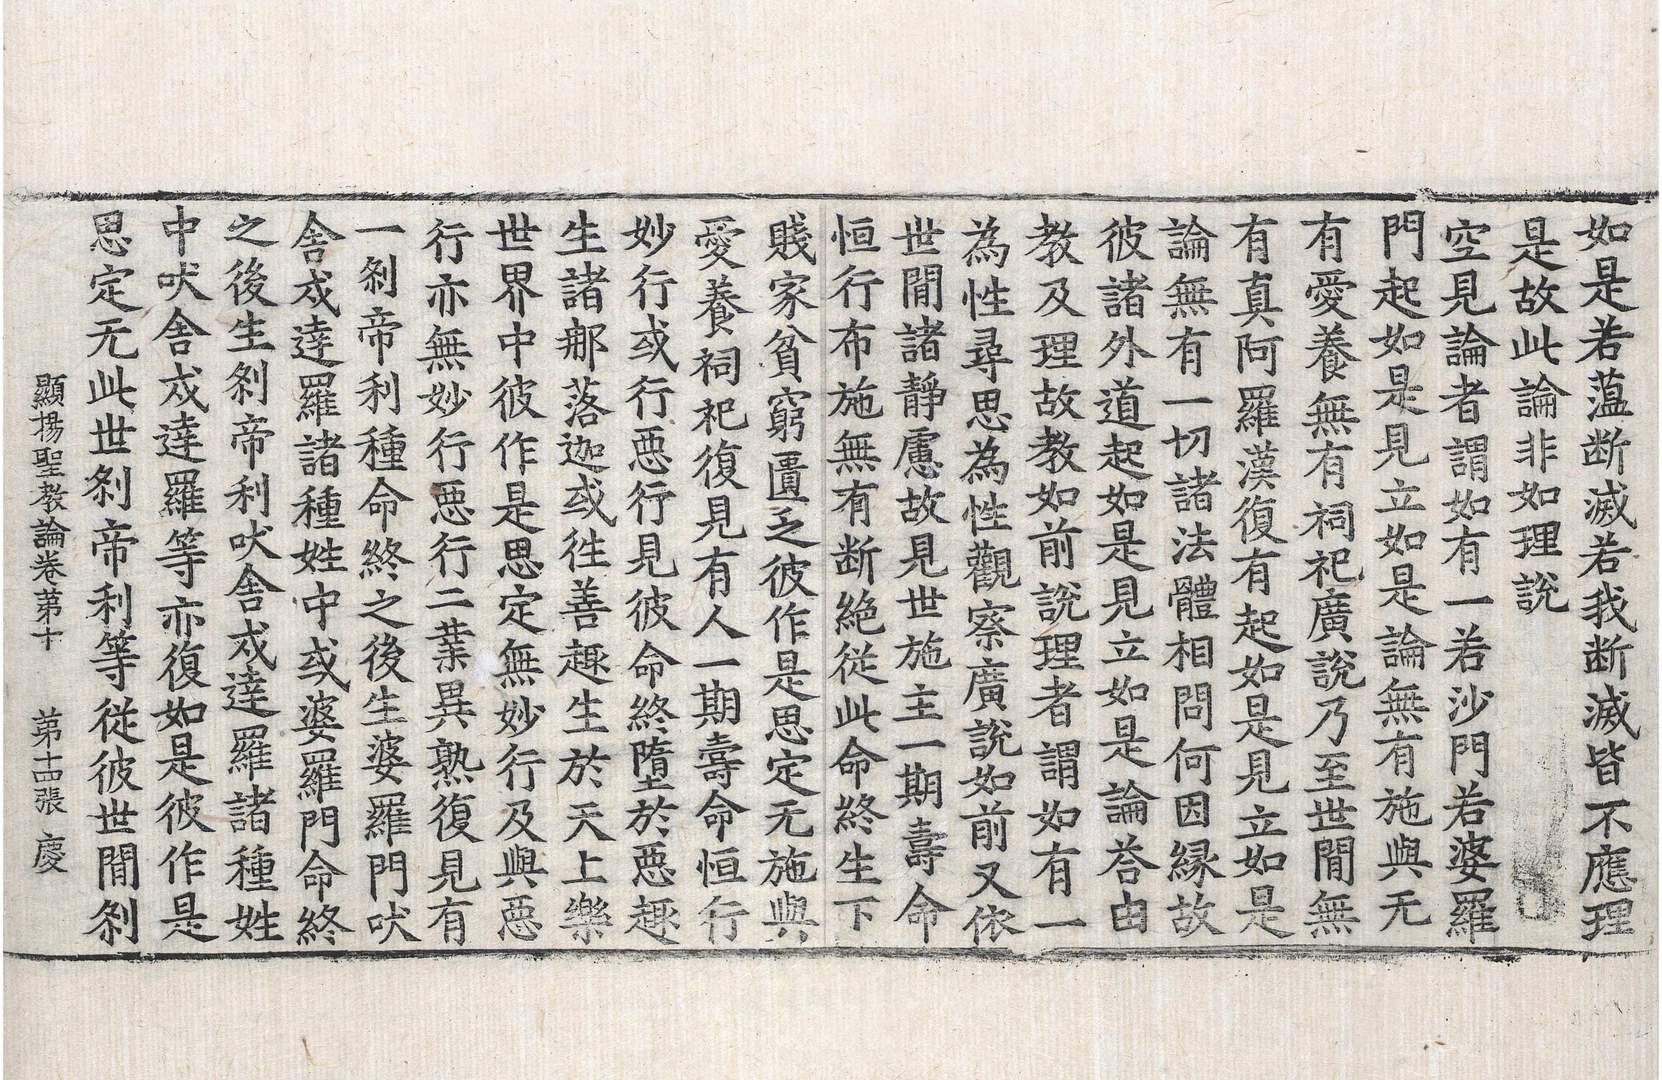 如是若薀断滅若我断滅皆不應理
是故此論非如理說
空見論者謂如有一若沙門若婆羅
門起如是見立如是論無有施與无
有愛養無有祠祀廣說乃至世間無
有真阿羅漢復有起如是見立如是
論無有一切諸法體相問何因縁故
彼諸外道起如是見立如是論荅由
教及理故教如前說理者謂如有一
為性尋思為性觀察廣說如前又依
世間諸靜慮故見世施主一期壽命
恒行布施無有断絶從此命終生下
賤家貧窮匱乏彼作是思定无施與
愛養祠祀復見有人一期壽命恒行
妙行或行惡行見彼命終墮於惡趣
生諸那落迦或徃善趣生於天上樂
世界中彼作是思定無妙行及與惡
行亦無妙行惡行二業異熟復見有
一剎帝利種命終之後生婆羅門吠
舍戍達羅諸種姓中或婆羅門命終
之後生剎帝利吠舍戍達羅諸種姓
中吠舍戍達羅等亦復如是彼作是
思定无此世剎帝利等從彼世間剎
顯揚聖教論卷第十 第十四張 慶